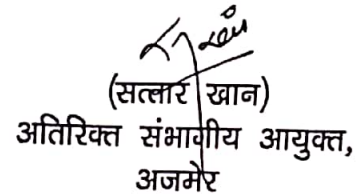 (सत्तार खान)
अतिरिक्त संभागीय आयुक्त,
अजमेर